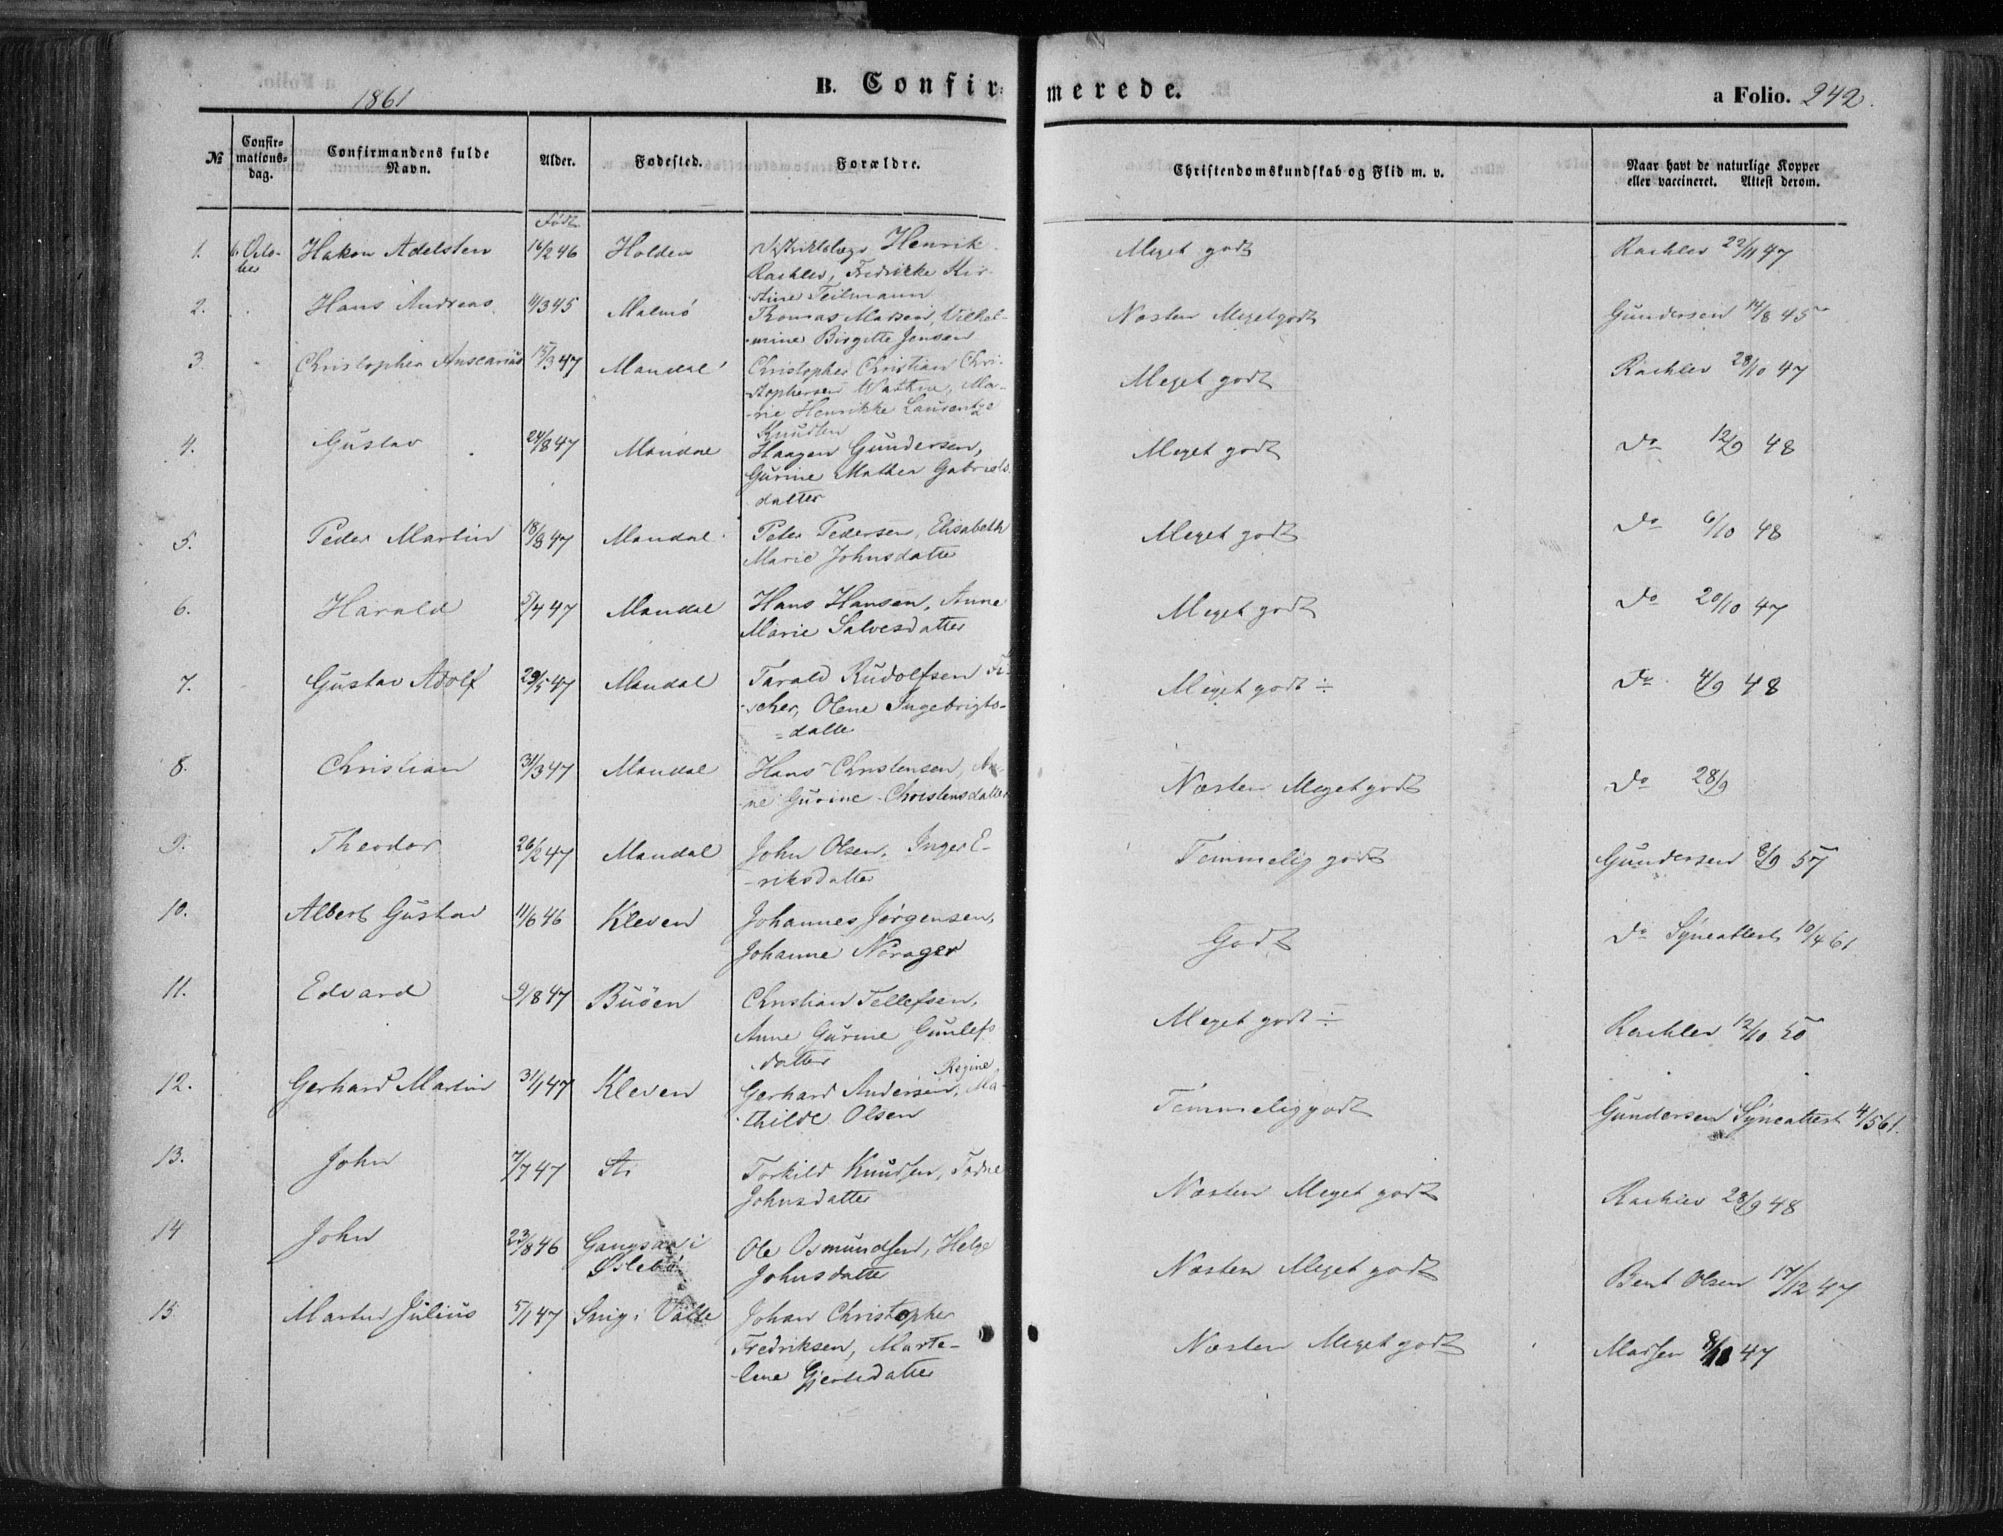 1861
B. Confirmerede.
a Folio. 242.
№ Confirmationsdag. Confirmandens fulde Navn. Alder. Fødested. Forældre. Christendomskundskab og Flid m. v. Naar havt de naturlige Kopper eller vaccineret. Attest derom.
Født
1. 6. Octo- Hakon Adelsten 16/2 46 Holden Distriktslæge Henrik Meget godt Rachlev 22/11 47
ber Rachlev, Fredrikke Kir-
stine Teilmann
2. Hans Andreas 11/3 45 Malmø Thomas Madsen, Vilhel- Næsten Meget godt Gundersen 14/8 45
mine Birgitte Jensen
3 Christopher Anscarius 15/3 47 Mandal Christopher Christian Chri- Meget godt Rachlev 28/10 47
stophersen Wathne, Ma-
rie Henrikke Laurentze
Knudsen
4. Gustav 24/8 47 Mandal Haagen Gundersen, Meget godt Do 12/9 48
Gurine Mathea Gabriels-
datter
5. Peder Martin 18/8 47 Mandal Peter Pedersen, Elisabeth Meget godt Do 6/10 48
Marie Johnsdatte
6. Harald 5/4 47 Mandal Hans Hansen, Anne Meget godt Do 20/10 47
Marie Salvesdatter
7. Gustav Adolf 29/5 47 Mandal Tarald Rudolfsen Fi- Meget godt ÷ Do 4/9 48
scher, Olene Ingebrigts-
datte
8. Christian 31/3 47 Mandal Hans Christensen, An- Næsten Meget godt Do 28/9
ne Gurine Christensdatter
9. Theodor 26/2 47 Mandal John Olsen, Inger E- Temmelig godt Gundersen 8/9 57
riksdatter
10. Albert Gustav 11/6 46 Kleven Johannes Jørgensen, Godt Do Syneattest 10/4 61
Johanne Norager
11. Edvard 9/8 47 Buöen Christian Tellefsen, Meget godt ÷ Rachlev 12/10 50
Anne Gurine Gunlefs
datter
12. Gerhard Martin 31/1 47 Kleven Gerhard Andersen, Regine Ma- Temmelig godt Gundersen Syneattest 4/5 61.
thilde Olsen
13. John 7/7 47 Torkild Knudsen, Todne Næsten Meget godt Rachlev 28/9 48
Johnsdatter
14 John 23/8 46 i Ole Osmundsen, Helge Næsten Meget godt Bent Olsen 17/12 47
Øslebø Johnsdatte
15 Martin Julius 5/1 47 Snig i Valle Johan Christopher Næsten Meget godt Madsen 47
Fredriksen, Marte-
lene Gjertsdatter